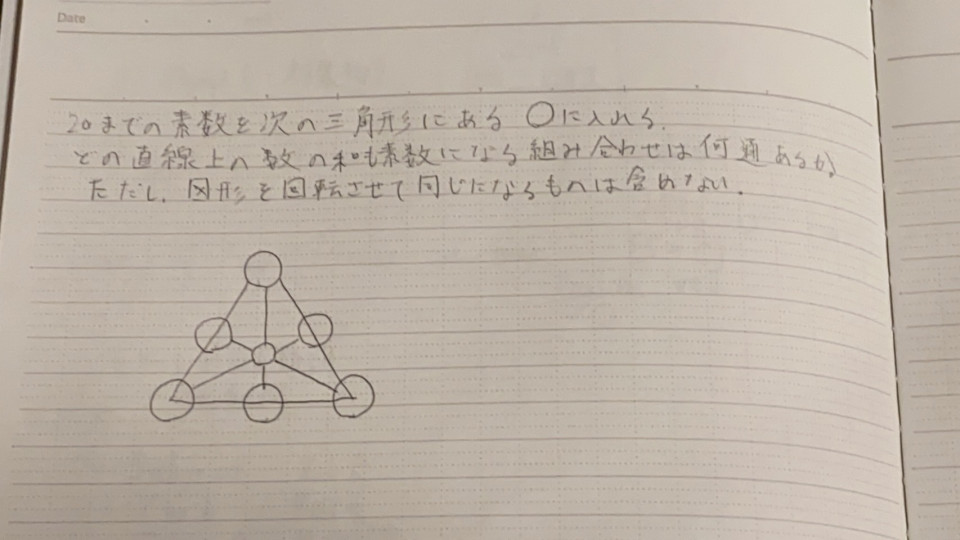 Date
20までの素数を次の三角形にある○に入れる.
どの直線上の数の和も素数になる組み合わせは何通あるか
ただし、図形を回転させて同じになるものは含めない.